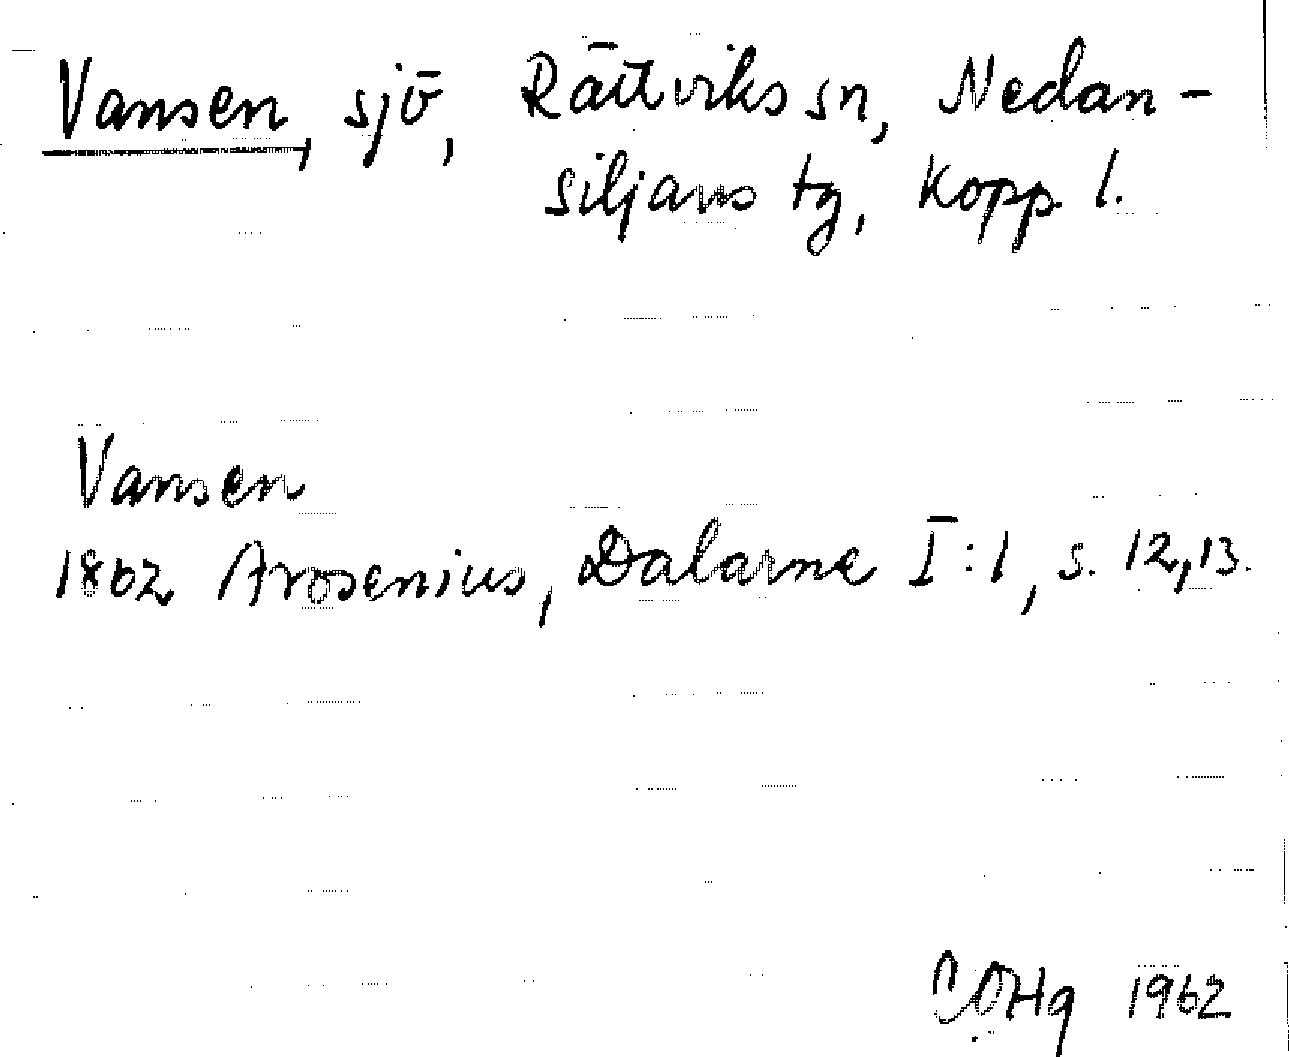 Vansen, sjö, Rättviks sn, Nedan-
siljans tg, Kopp. l.
Vansen
1862 Arosenius, Dalarne I:1, s. 12,13.
COHg 1962